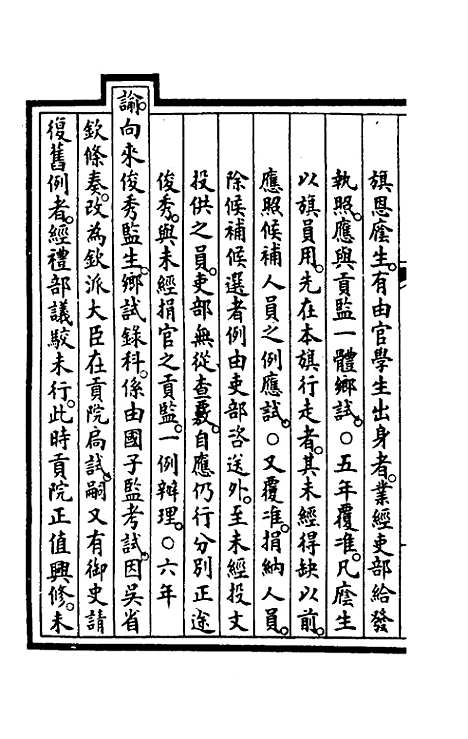 旗恩廕生。有由官學生出身者。業經吏部給發
執照。應與貢監一體鄉試。○五年覆准。凡廕生
以旗員用。先在本旗行走者。其未經得缺以前。
應照候補人員之例應試。○又覆准。捐納人員。
除候補候選者例由吏部咨送外。至未經投文
投供之員。吏部無從查覈。自應仍行分別正途
俊秀。與未經捐官之貢監。一例辦理。○六年
諭。向來俊秀監生。鄉試錄科。係由國子監考試。因吳省
欽條奏。改為欽派大臣在貢院局試。嗣又有御史請
復舊例者。經禮部議駮未行。此時貢院正值興修。未